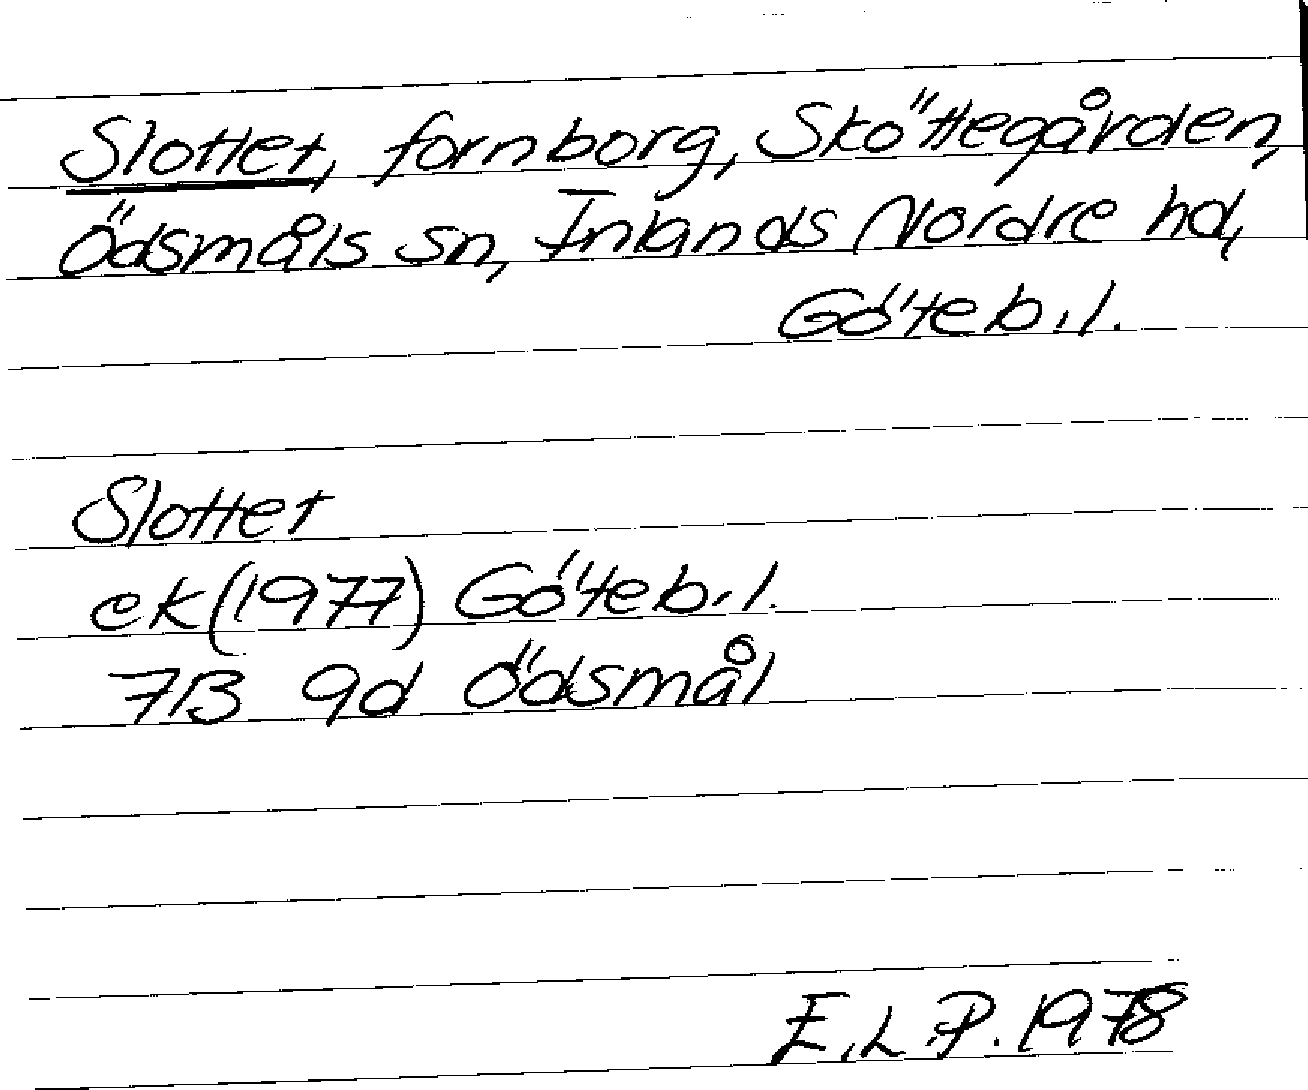 Slottet, fornborg, Sköttegården,
Ödsmåls sn, Inlands Nordre hd,
Göteb.l.
Slottet
ek (1977) Göteb.l.
7B 9d Ödsmål
E.L.P. 1978